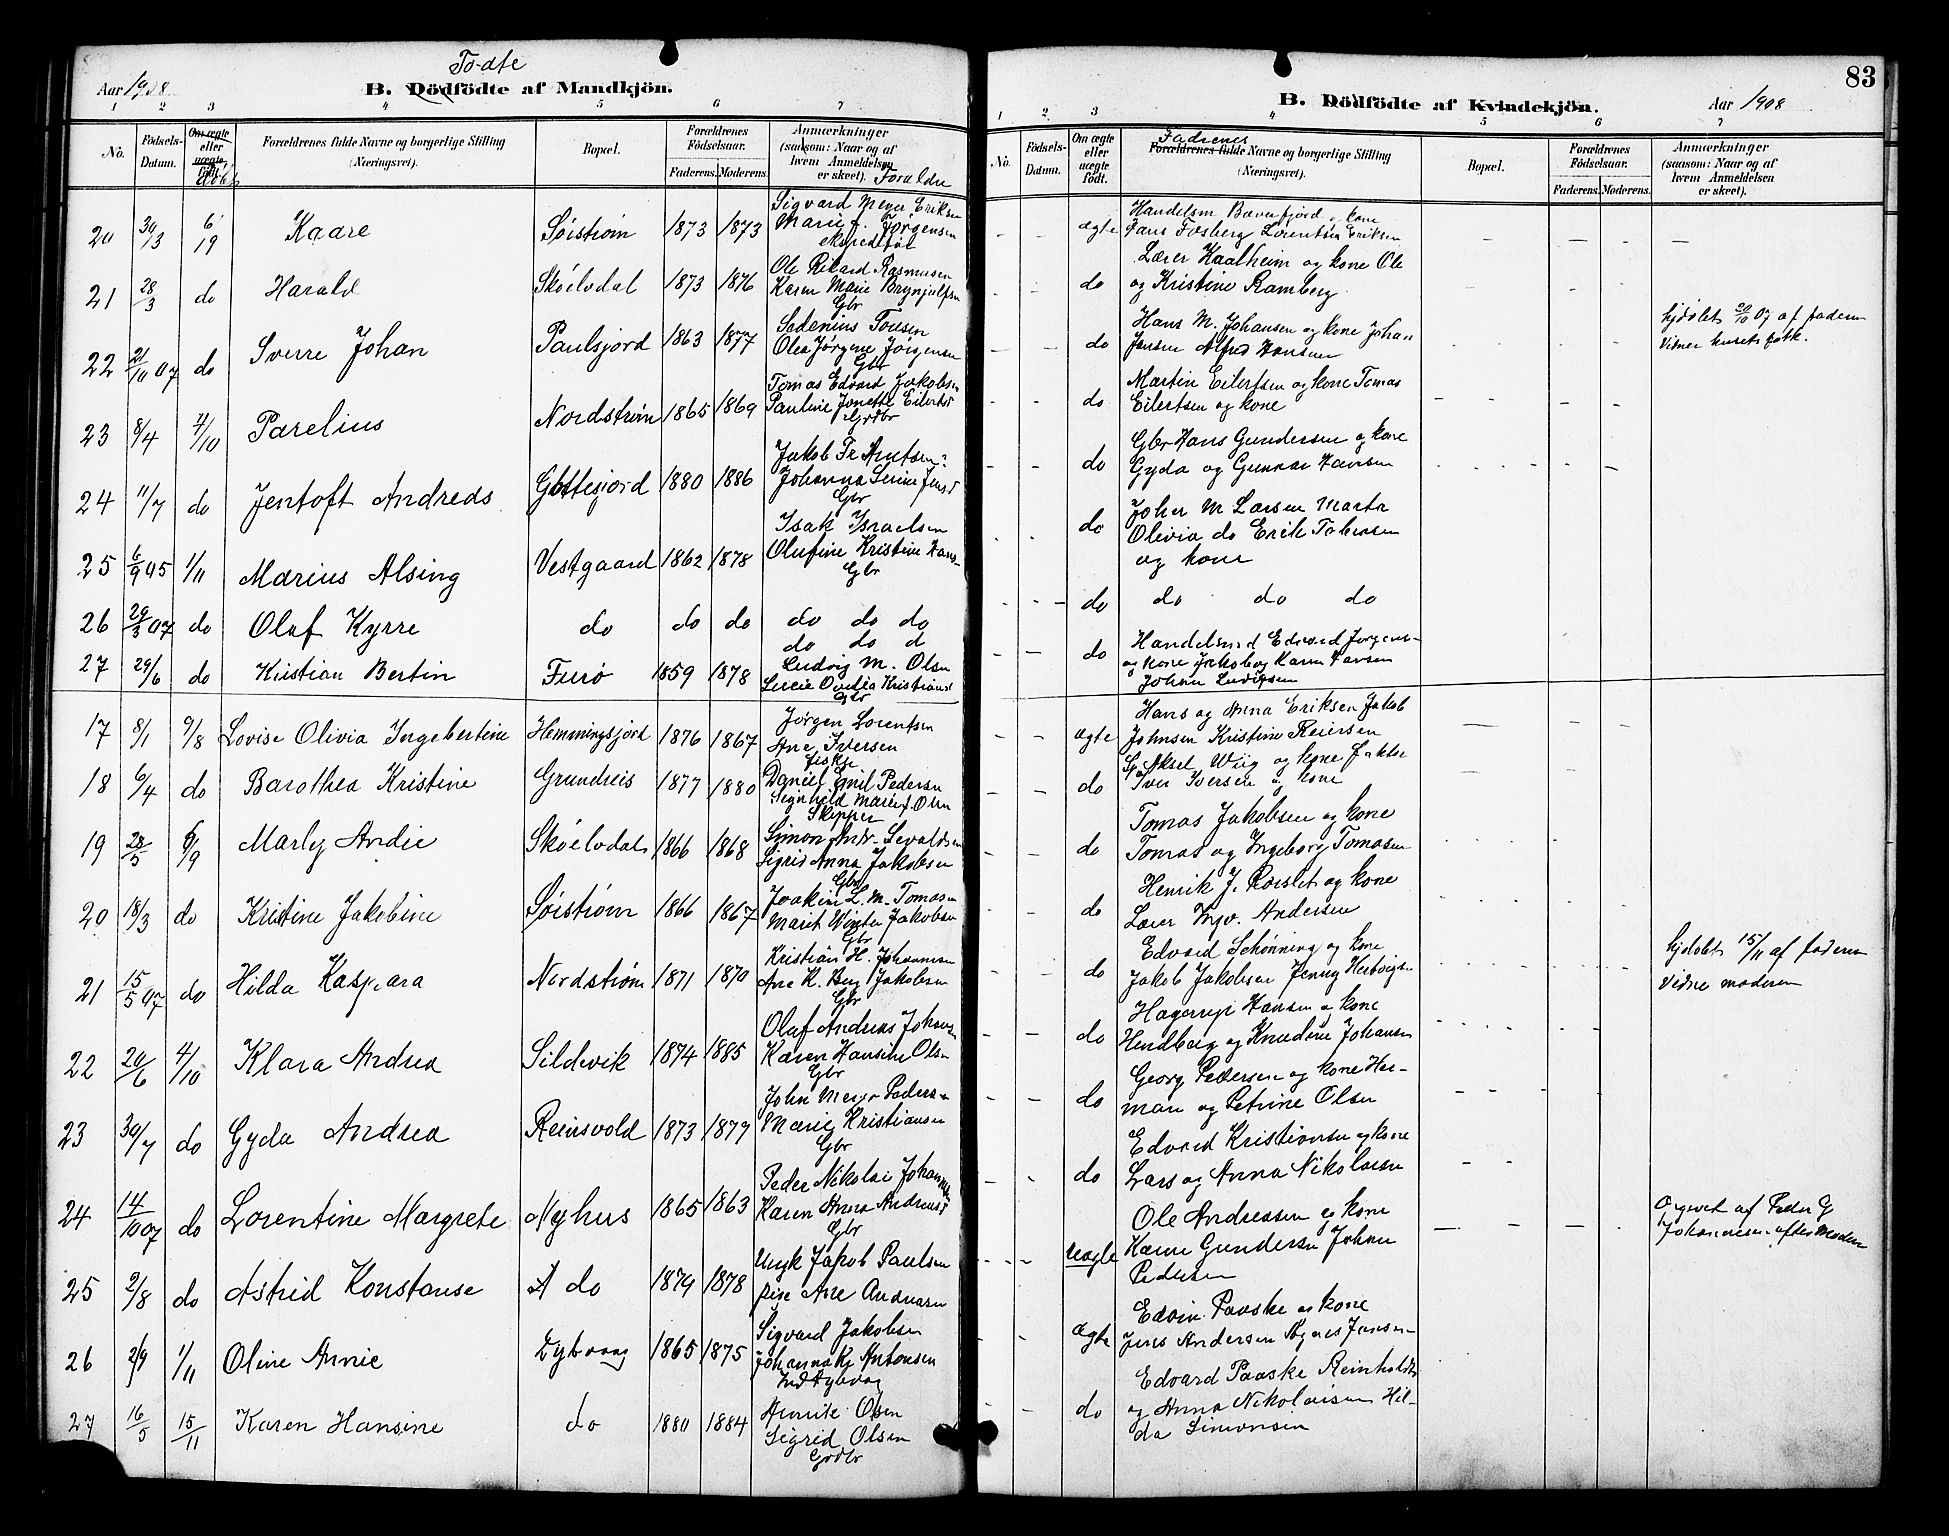 Aar 1908.
To-dte
B. Dödfödte af Mandkjön.
1 2 3 4 5 6 7
No.
Födsels-Datum.
Om ægte eller uægte födt.
Forældrenes fulde Navne og borgerlige Stilling (Næringsvei).
Bopæl.
Forældrenes Födselsaar.
Faderens. Moderens.
Anmærkninger (saasom: Naar og af hvem Anmeldelsen er skeet). Forældre
20 30/3 6/19 Kaare Söistrøm 1873 1873 Sigvard Meyer Eriksen
Marie J. Jørgensen
21 28/3 do Harald Skøelvdal 1873 1876 Ole Rikard Rasmussen
Karen Marie Brynjulfsen
Gbr
22 21/10 07 do Sverre Johan Paulsjord 1863 1877 Sedenius Tousen
Olea Jørgine Jörgensen
Gbr
23 8/4 4/10 Parelius Nordstrøm 1865 1869 Tomas Edvard Jakobsen
Pauline Jonette Eilertsd
Grdbr
24 11/7 do Jentoft Andreas Gottesjord 1880 1886 Jakob Fr Knutsen
Johanna Serine Jensd
Gbr
25 6/9 05 1/11 Marius Alsing Vestgaard 1862 1878 Isak Israelsen
Olufine Kristine Hans-
Gbr
26 29/3 07 do Olaf Kyrre do do do do do do
do do d
27 29/6 do Kristian Bertin Furø 1859 1878 Ludvig M. Olsen
Lucie Ovidia Kristiansd
Gbr
17 8/1 9/8 Lovise Olivia Ingebertine Hemmingsjord 1876 1867 Jørgen Lorentsen
Ane Iversen
fiskje
18 6/4 do Barothea Kristine Grundreis 1877 1880 Daniel Emil Pedersen
Signhild Marie J. Olsen
Skipper
19 28/5 6/9 Marly Andie Skøelvdal 1866 1868 Simon Andr. Sevaldsen
Sigrid Anna Jakobsen
Gbr
20 18/3 do Kristine Jakobine Søistrøm 1866 1867 Joakim L. M. Tomasen
Marit Winter Jakobsen
Gbr
21 15/5 07 do Hilda Kaspara Nordstrøm 1871 1870 Kristian H. Johannesen
Ane K. Berg Jakobsen
Gbr
22 20/6 4/10 Klara Andrea Sildevik 1874 1885 Olaf Andreas Johansen
Karen Hansine Olsen
Gbr
23 30/7 do Gyda Andrea Reinsvold 1873 1879 John Meyer Pedersen
Marie Kristiansen
Gbr
24 14/10 07 do Lorentine Margrete Nyhus 1865 1863 Peder Nikolai Johannesen
Karen Anna Andreasd
Gbr
25 2/8 do Astrid Konstanse do 1879 1878 Ungk Jakob Paulsen
pige Ane Andersen
26 2/9 1/11 Oline Annie Dybvaag 1865 1875 Sigvard Jakobsen
Johanna Kr Antonsen
Ind Dybvag
27 16/5 15/11 Karen Hansine do 1880 1884 Henrik Olsen
Sigrid Olsen
Grdbr
83
B. Dödfödte af Kvindekjön.
Aar 1908
1 2 3 4 5 6 7
No.
Födsels-Datum.
Om ægte eller uægte födt.
Fadrenes
Forældrenes fulde Navne og borgerlige Stilling (Næringsvei).
Bopæl.
Forældrenes Födselsaar.
Faderens. Moderens.
Anmærkninger (saasom: Naar og af hvem Anmeldelsen er skeet).
ægte Handelsm Bæverfjord og kone
Hans Fosberg Lorentsen Eriksen
Lærer Kaalheim og kone Ole
do og Kristine Ramberg
Hans M. Johansen og kone Johan
do Jensen Alfred Hansen
hjdøbt 20/10 07 af faderen
Vidner husets folk.
Martin Eilertsen og kone Tomas
do Eilertsen og kone
Gbr Hans Gundersen og kone
do Gyda og Gunnar Hansen
Joher M Larsen Marta
do Olivia do Erik Tobiasen
og kone
do do do do
Handelsmd Edvard Jørgens-
do og kone Jakob og Karen Hansen
Johan Ludvigsen
Hans og Anna Eriksen Jakob
ægte Johnsen Kristine Reiersen
Aksel Wiig og kone
do Iver Iversen og kone
Tomas Jakobsen og kone
do Tomas og Ingeborg Tomasen
Henrik J. Rørslet og kone
do Lærer Ingv. Andersen
Edvard Schønning og kone
do Jakob Jakobsen Jenny Hertvigsen
hjdøbt 15/11 af faderen
Vidne moderen
Hagerup Hansen og kone
do Hendberg og Knudine Johansen
Georg Pedersen og kone Her-
do man og Petrine Olsen
Edvard Kristiansen og kone
do Lars og Anna Nikolaisen
Ole Andreassen og kone
uægte Karen Gundersen Johan
Pedersen
Opgivet af Peder G
Johannesen efter Moderen
Edvin Paaske og kone
ægte Jens Andersen Agnes Jansen-
Edvard Paaske Reinholdt
do og Anna Nikolaisen Hil-
da Simonsen